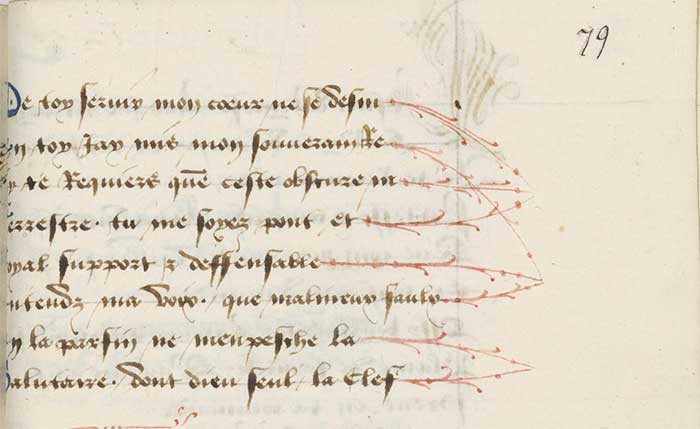 79
De toy seruir mon coeur ne se desm
En toy Jay mis mon souuerain Re
y te Requiers que ceste obscure m
errestre. tu me soyez pont et
oyal support & deffensable
ntendz ma voix. que malineux
y la parfin ne menpesche la
alutaire. dont dieu seul la clef